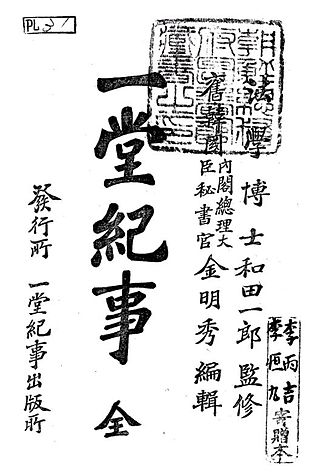 法學博士和田一郎監修
舊韓國內閣總理大臣秘書官金明秀編輯
一堂紀事 全
發行所 一堂紀事出版所
李丙吉
李恒九
寄贈本